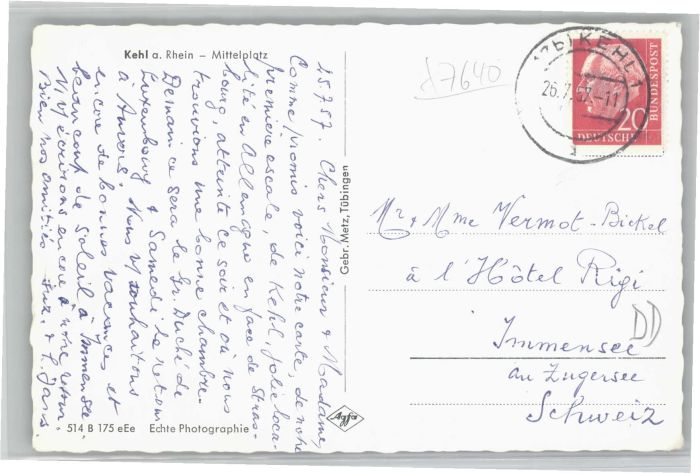 Kehl a. Rhein – Mittelplatz
15.7.57. Chers Monsieur & Madame,
Comme promis voici notre carte, de notre
première escale, de Kehl, jolie loca-
lité en Allemagne en face de Stras-
bourg atteinte ce soir et où nous
trouvions une bonne chambre.
Demain ce sera le Gr. Duché de
Luxembourg & Samedi le retour
à Anvers. Nous V/ souhaitons
encore de bonnes vacances et
beaucoup de soleil à Immensee.
N/ V/ écrirons encore à notre retour.
Bien nos amitiés
Gebr. Metz, Tübingen
514 B 175 eEe
Echte Photographie
Agfa
d7640
(17b) KEHL 1
26.7.57.-11
20
DEUTSCHE
BUNDESPOST
Mr & Mme Vermot-Bickel
à l'Hôtel Rigi
Immensee
am Zugersee
Schweiz
DD